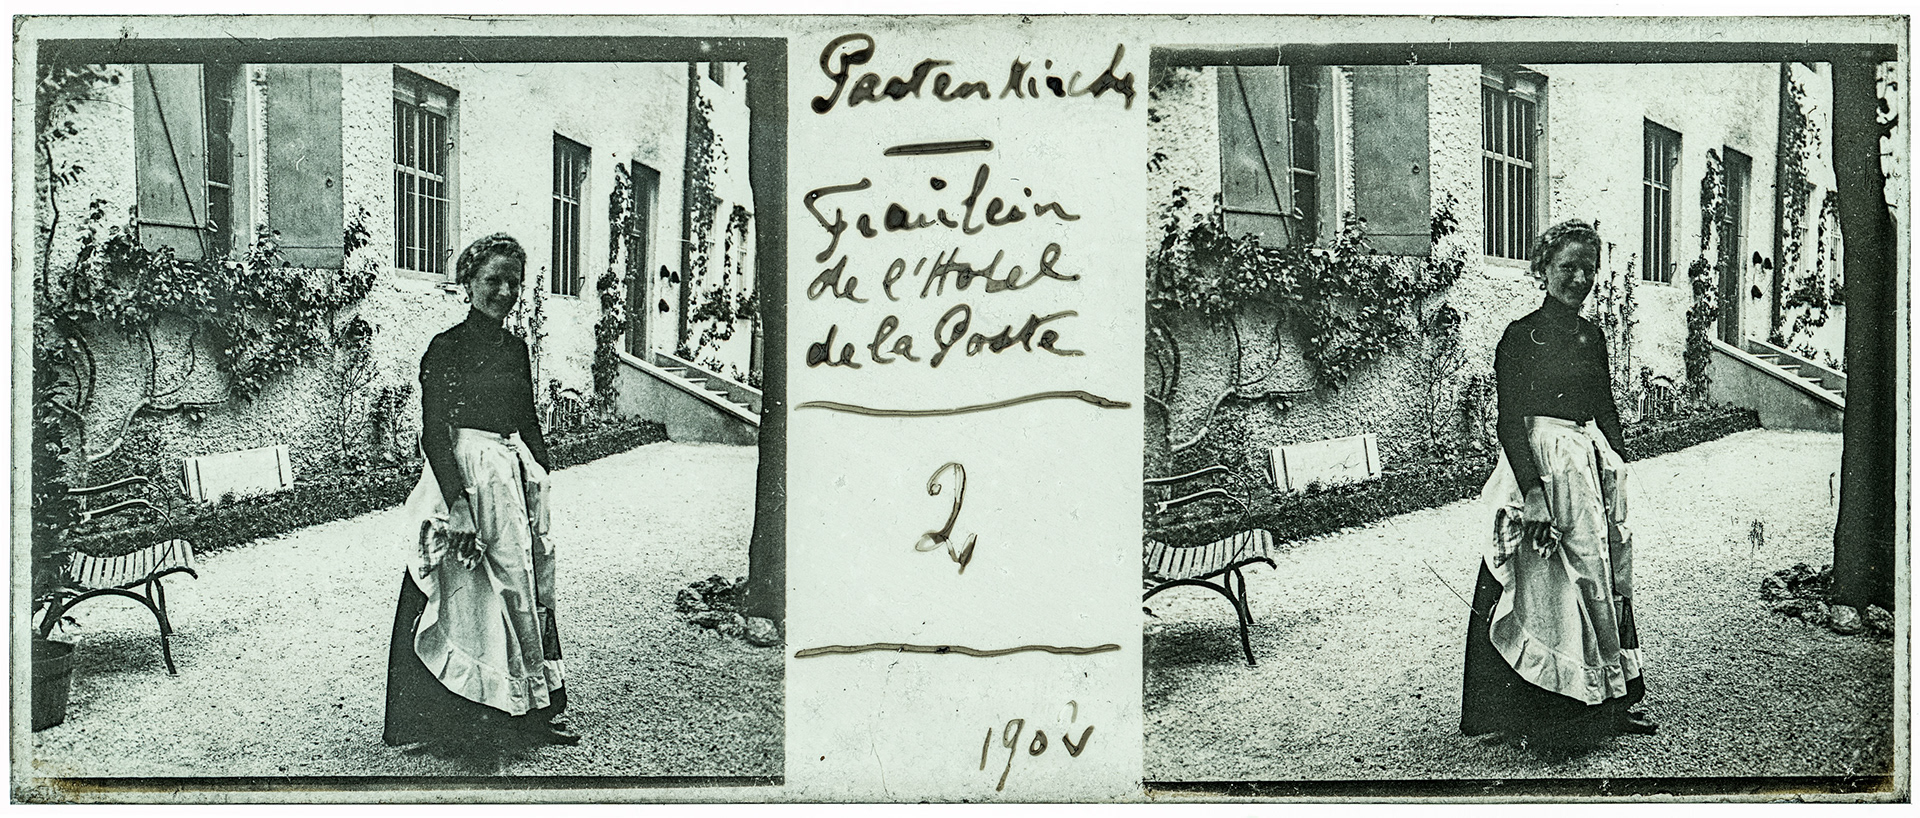 Partenkirchen
Fraülein
de l'Hotel
de la Poste
2